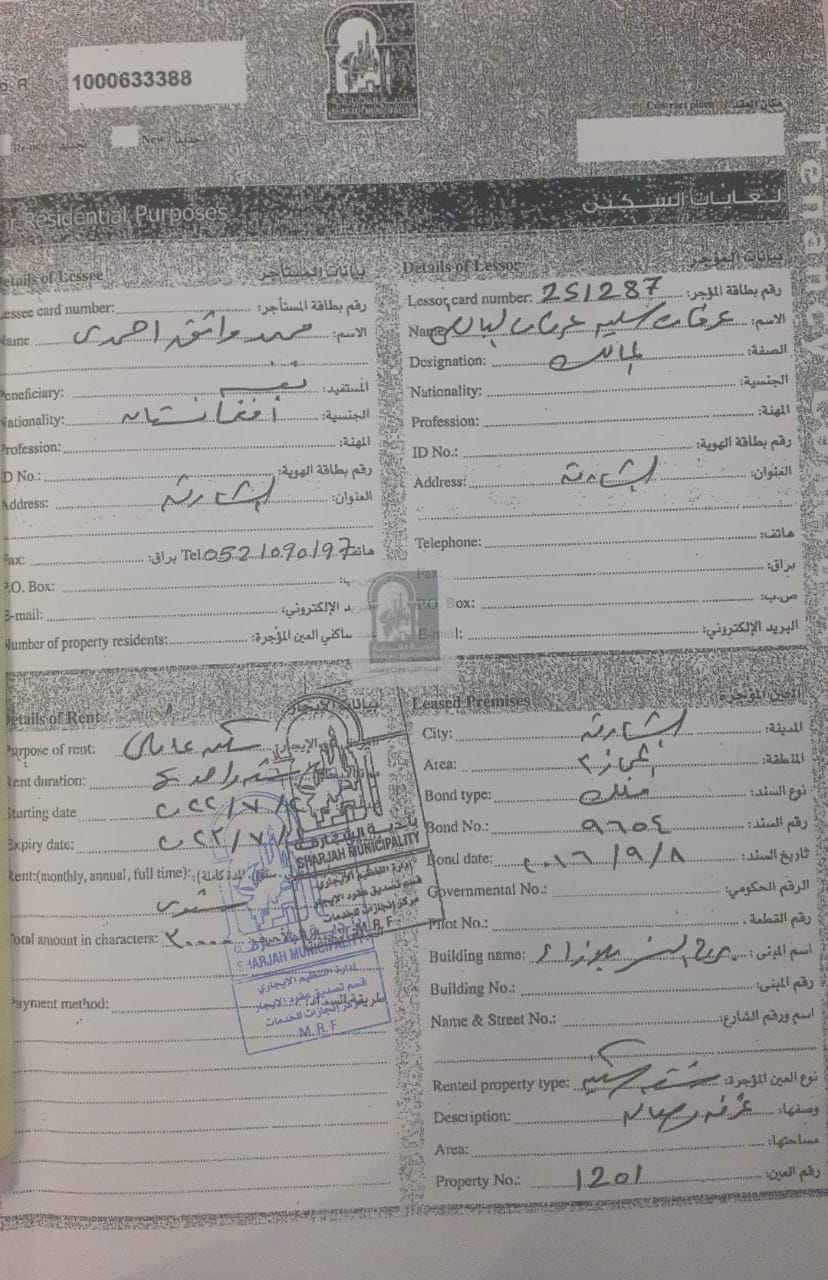 1000633388
مكان العقد / Contract place
Renew / تجديد
New / جديد
Residential Purposes
لغايات السكن
Details of Lessor بيانات المؤجر
Lessor card number: 251287 رقم بطاقة المؤجر:
Name الاسم:
Designation: المالك الصفة:
Nationality: الجنسية:
Profession: المهنة:
ID No.: رقم بطاقة الهوية:
Address: الشارقة العنوان:
Telephone: هاتف:
Fax: براق:
P.O. Box: ص.ب:
E-mail: البريد الإلكتروني:
Details of Lessee بيانات المستأجر
Lessee card number: رقم بطاقة المستأجر:
Name محمد واثق احمدی الاسم:
Beneficiary: المستفيد:
Nationality: أفغانستان الجنسية:
Profession: المهنة:
ID No.: رقم بطاقة الهوية:
Address: الشارقة العنوان:
Fax: براق: Tel. 0521090197 هاتف
P.O. Box: ب:
E-mail: د الإلكتروني:
Number of property residents: ساكني العين المؤجرة:
Leased Premises العين المؤجرة
City: الشارقة المدينة:
Area: المجاز ٢ المنطقة:
Bond type: ملك نوع السند:
Bond No.: ٩٦٥٤ رقم السند:
Bond date: ٢٠١٦/٩/٨ تاريخ السند:
Governmental No.: الرقم الحكومي:
Pilot No.: رقم القطعة
Building name: اسم المبنى:
Building No.: رقم المبنى:
Name & Street No.: اسم ورقم الشارع:
Rented property type: نوع العين المؤجرة:
Description: غرفة وصالة وصفها:
Area: مساحتها:
Property No.: 1201 رقم العين:
Details of Rent بيانات الإيجار
Purpose of rent: سكن عائلي
Rent duration:
Starting date
Expiry date:
Rent:(monthly, annual, full time):
سنوي
Total amount in characters:
Payment method: طريقة السداد:
بلدية الشارقة
SHARJAH MUNICIPALITY
إدارة التنظيم الإيجاري
قسم تصديق عقود الإيجار
مركز إنجازات للخدمات
M.R.F
SHARJAH MUNICIPALITY
إدارة التنظيم الايجاري
قسم تصديق عقود الايجار
مركز إنجازات للخدمات
M.R.F